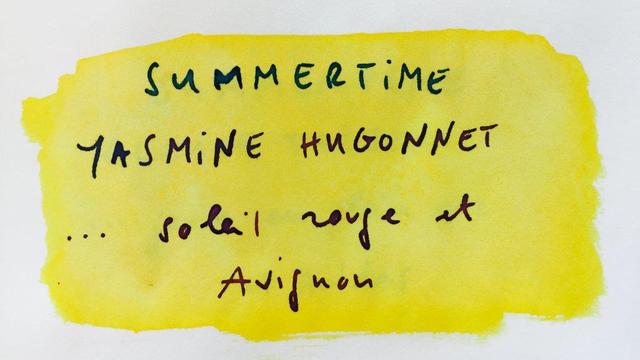 SUMMERTiME
YASMiNE HUGONNET
... soleil rouge et
Avignon